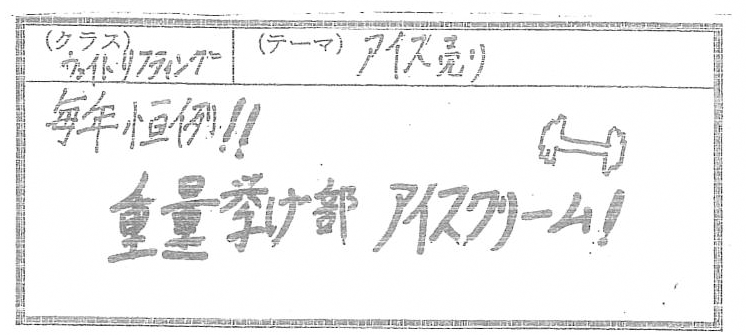 (クラス) (テーマ) アイス売り
ウェイトリフティング
毎年恒例!!
重量挙げ部 アイスクリーム!